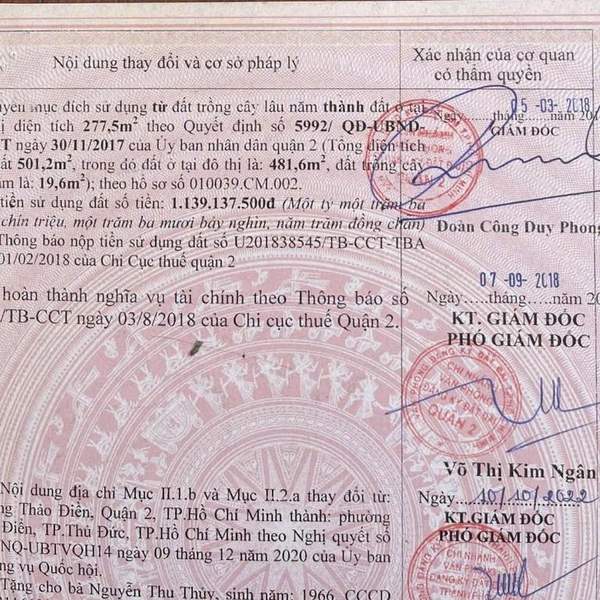 Nội dung thay đổi và cơ sở pháp lý
Xác nhận của cơ quan
có thẩm quyền
mục đích sử dụng từ đất trồng cây lâu năm thành đất ở tại
diện tích 277,5m² theo Quyết định số 5992/ QĐ-UBND-
T ngày 30/11/2017 của Ủy ban nhân dân quận 2 (Tổng diện tích
501,2m², trong đó đất ở tại đô thị là: 481,6m², đất trồng cây
là: 19,6m²); theo hồ sơ số 010039.CM.002.
tiền sử dụng đất số tiền: 1.139.137.500đ (Một tỷ một trăm ba
chín triệu, một trăm ba mươi bảy nghìn, năm trăm đồng chẵn)
Thông báo nộp tiền sử dụng đất số U201838545/TB-CCT-TBA
01/02/2018 của Chi Cục thuế quận 2
05 -03- 2018
Ngày......tháng......năm 20
GIÁM ĐỐC
QUẬN 2
Đoàn Công Duy Phong
hoàn thành nghĩa vụ tài chính theo Thông báo số
/TB-CCT ngày 03/8/2018 của Chi cục thuế Quận 2.
07 -09- 2018
Ngày.....tháng.....năm 20
KT. GIÁM ĐỐC
PHÓ GIÁM ĐỐC
CHI NHÁNH
VĂN PHÒNG
ĐĂNG KÝ ĐẤT ĐAI
QUẬN 2
Võ Thị Kim Ngân
Nội dung địa chỉ Mục II.1.b và Mục II.2.a thay đổi từ:
Thảo Điền, Quận 2, TP.Hồ Chí Minh thành: phường
Điền, TP.Thủ Đức, TP.Hồ Chí Minh theo Nghị quyết số
NQ-UBTVQH14 ngày 09 tháng 12 năm 2020 của Ủy ban
vụ Quốc hội.
Tặng cho bà Nguyễn Thu Thủy, sinh năm: 1966, CCCD
Ngày 10/10/2022
KT.GIÁM ĐỐC
PHÓ GIÁM ĐỐC
CHI NHÁNH